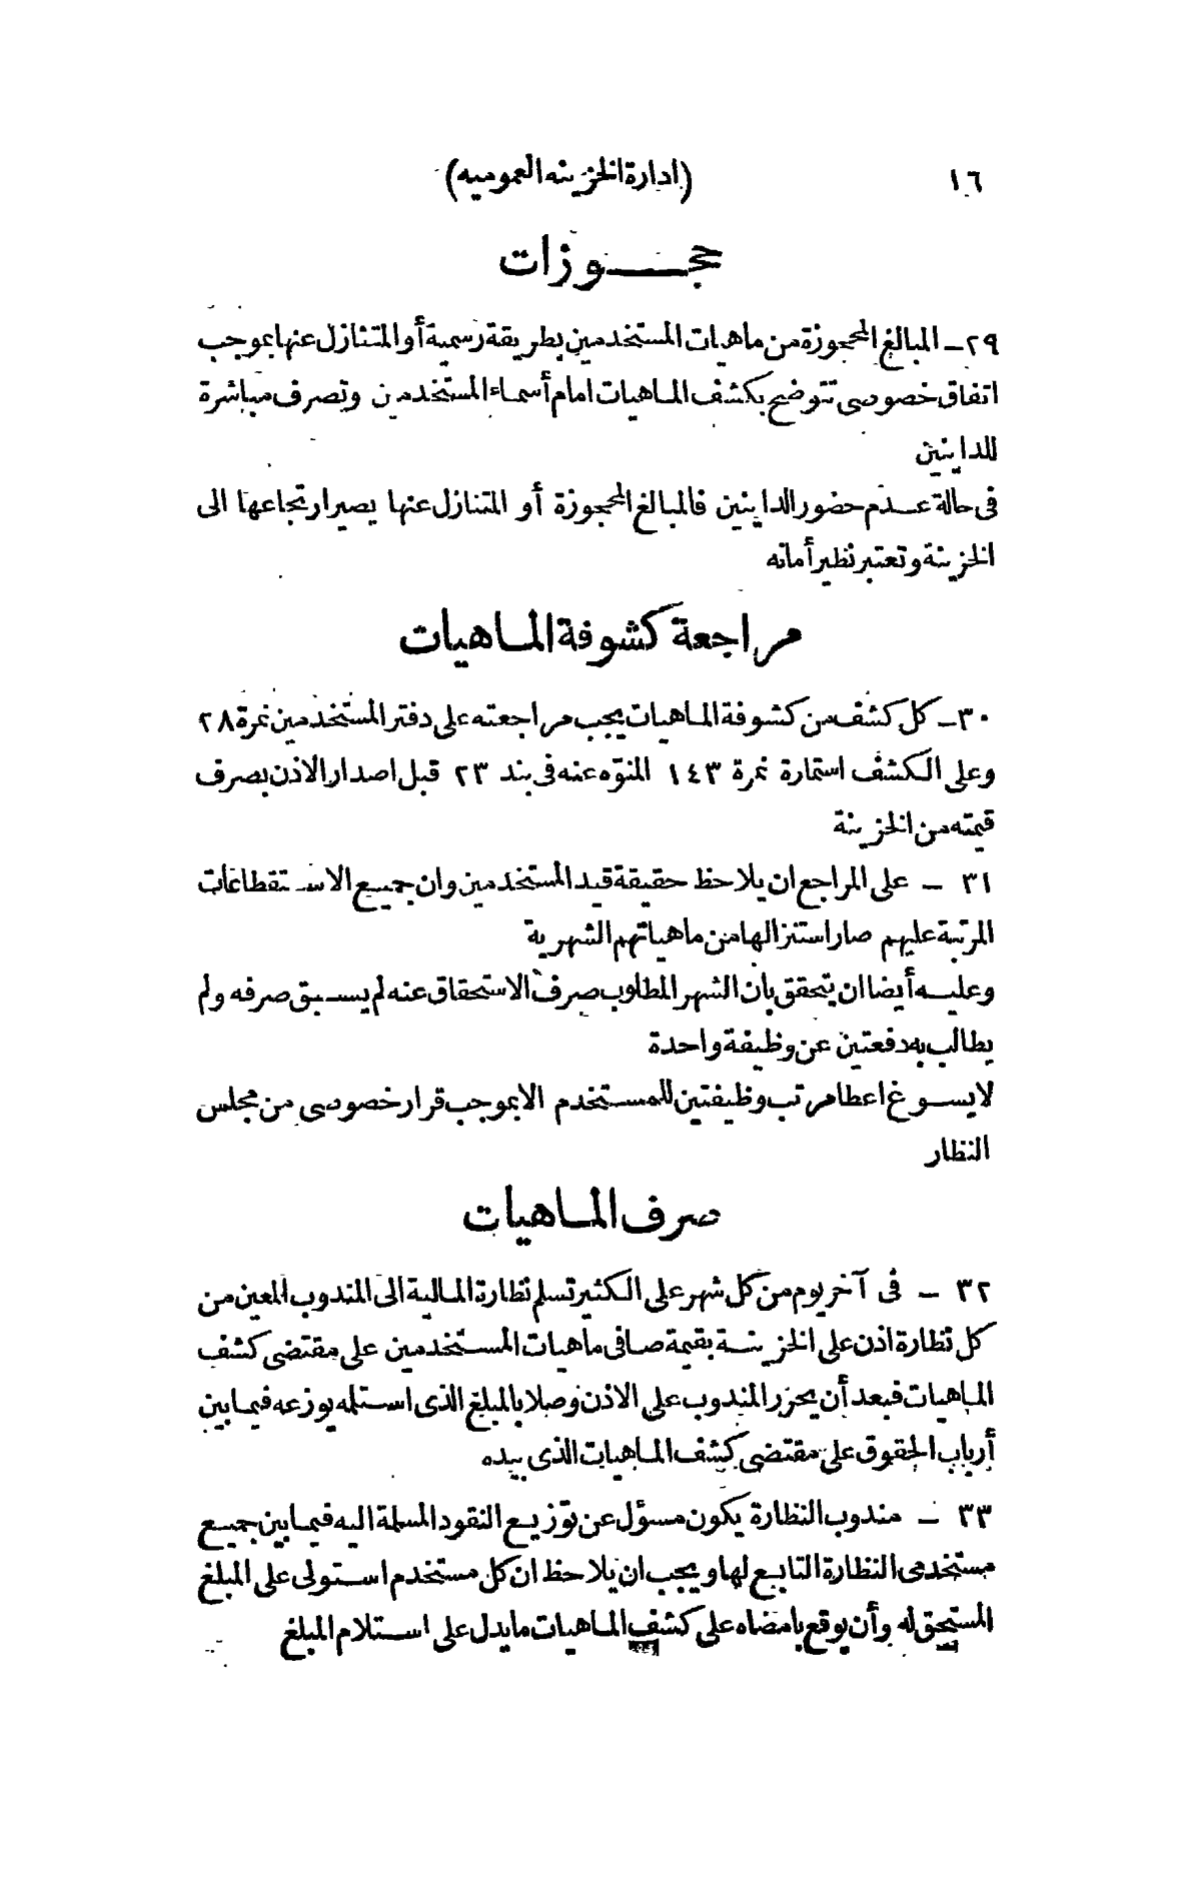 ١٦
(ادارة الخزينه العموميه)
حجـــوزات
٢٩ــ المبالغ المحجوزة من ماهيات المستخدمين بطريقة رسمية أو المتنازل عنها بموجب
اتفاق خصوصى تتوضح بكشف الماهيات امام أسماء المستخدمين وتصرف مباشرة
للداينين
فى حالة عدم حضور الداينين فالمبالغ المحجوزة أو المتنازل عنها يصير ارتجاعها الى
الخزينة وتعتبر نظير أمانه
مراجعة كشوفة الماهيات
٣٠ــ كل كشف من كشوفة الماهيات يجب مراجعته على دفتر المستخدمين نمرة ٢٨
وعلى الكشف استمارة نمرة ١٤٣ المنوّه عنه فى بند ٢٣ قبل اصدار الاذن بصرف
قيمته من الخزينة
٣١ ــ على المراجع ان يلاحظ حقيقة قيد المستخدمين وان جميع الاستقطاعات
المرتبة عليهم صار استنزالها من ماهياتهم الشهرية
وعليه أيضا ان يتحقق بان الشهر المطلوب صرف الاستحقاق عنه لم يسبق صرفه ولم
يطالب به دفعتين عن وظيفة واحدة
لا يسوغ اعطا مرتب وظيفتين للمستخدم الا بموجب قرار خصوصى من مجلس
النظار
صرف الماهيات
٣٢ ــ فى آخر يوم من كل شهر على الكثير تسلم نظارة المالية الى المندوب المعين من
كل نظارة اذن على الخزينة بقيمة صافى ماهيات المستخدمين على مقتضى كشف
الماهيات فبعد أن يحرر المندوب على الاذن وصلا بالمبلغ الذى استلمه يوزعه فيما بين
أرباب الحقوق على مقتضى كشف الماهيات الذى بيده
٣٣ ــ مندوب النظارة يكون مسؤل عن توزيع النقود المسلمة اليه فيما بين جميع
مستخدمى النظارة التابع لها ويجب ان يلاحظ ان كل مستخدم استولى على المبلغ
المستحق له وأن يوقع بامضاه على كشف الماهيات ما يدل على استلام المبلغ